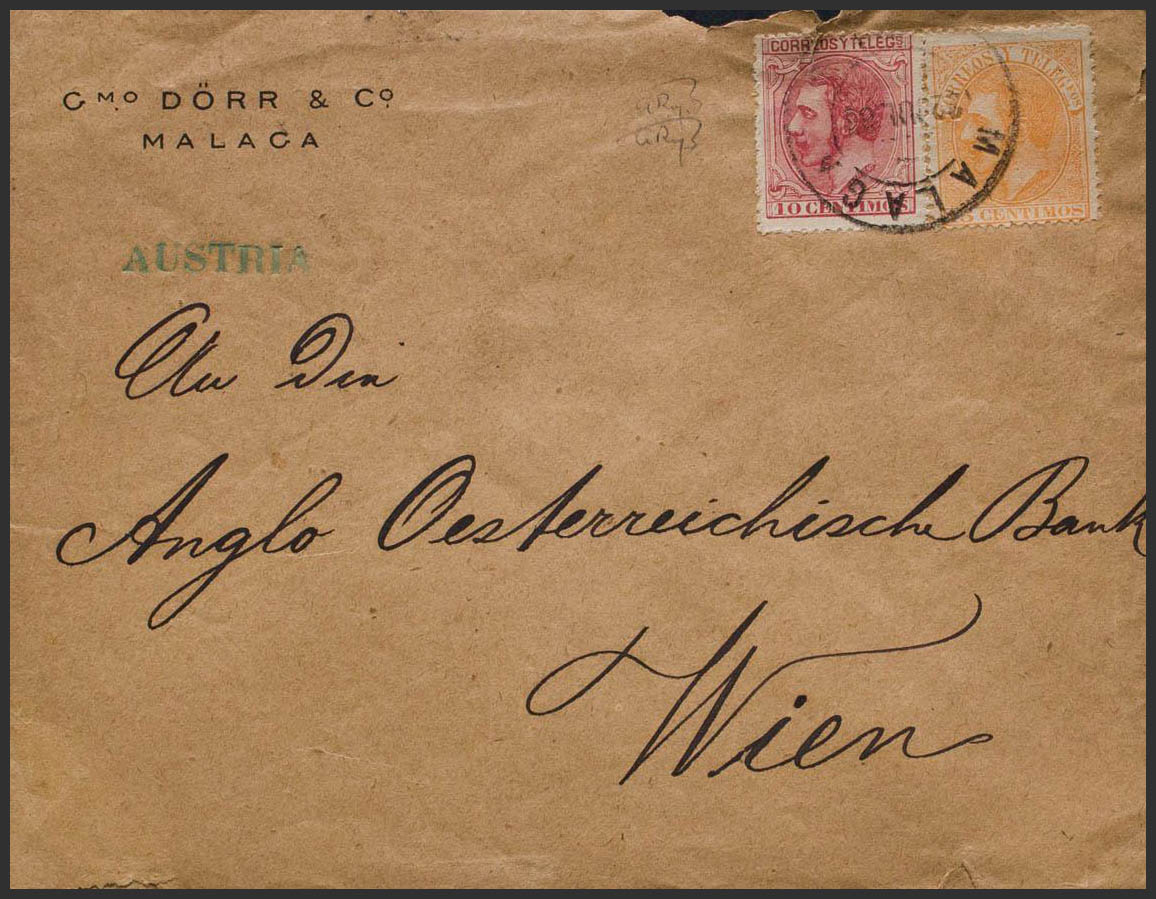 Gᴹᴼ DÖRR & Cº
MALAGA
CORREOS Y TELEGS
10 CENTIMOS
CORREOS Y TELEGFOS
CENTIMOS
MALAG
AUSTRIA
An Die
Anglo Oesterreichische Bank
Wien